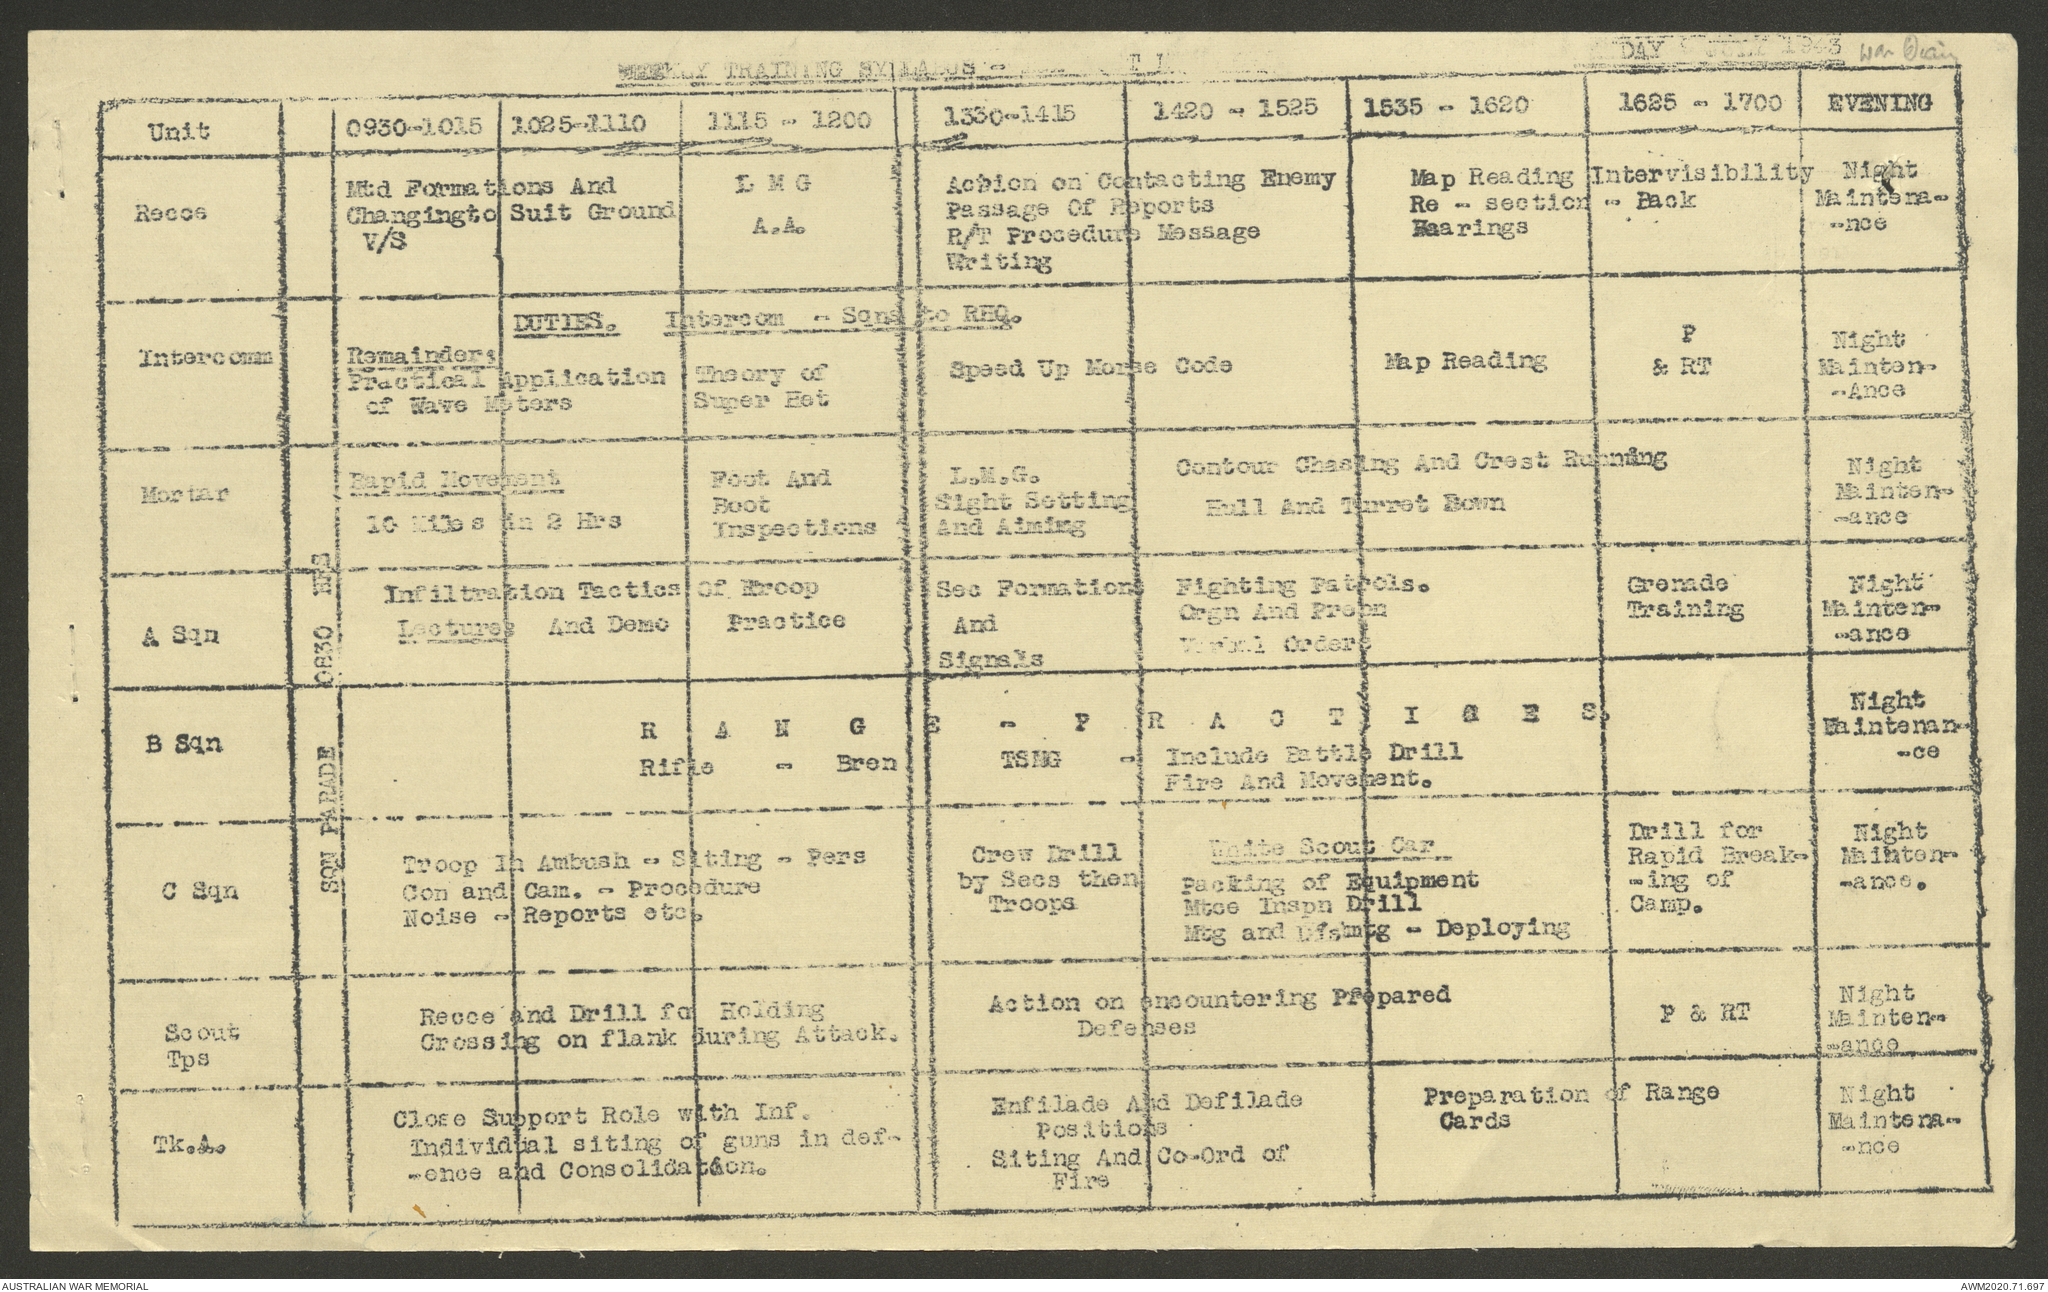 WEEKLY TRAINING SYLLABUS -
DAY JULY 1943
War Diary
Unit
0930-1015
1025-1110
1115 - 1200
1330-1415
1420 - 1525
1535 - 1620
1625 - 1700
EVENING
SQN PARADE 0830 HRS
Recce
Mtd Formations And
Changingto Suit Ground
V/S
L M G
A.A.
Action on Contacting Enemy
Passage Of Reports
R/T Procedure Message
Writing
Map Reading Intervisibility
Re - section - Back
Bearings
Night
Maintena-
-nce
Intercomm
DUTIES. Intercom - Sqns to RHQ.
Remainder:
Practical Application
of Wave Meters
Theory of
Super Het
Speed Up Morse Code
Map Reading
P
& RT
Night
Mainten-
-Ance
Mortar
Rapid Movement
10 Miles in 2 Hrs
Foot And
Boot
Inspections
L.M.G.
Sight Setting
And Aiming
Contour Chasing And Crest Running
Hull And Turret Down
Night
Mainten-
-ance
A Sqn
Infiltration Tactics Of Troop
Lectures And Demo Practice
Sec Formations
And
Signals
Fighting Patrols.
Orgn And Prepn
Verbal Orders
Grenade
Training
Night
Mainten-
-ance
B Sqn
R A N G E - P R A C T I C E S.
Rifle - Bren TSMG - Include Battle Drill
Fire And Movement.
Night
Maintenan-
-ce
C Sqn
Troop In Ambush - Siting - Pers
Con and Cam. - Procedure
Noise - Reports etc.
Crew Drill
by Secs then
Troops
White Scout Car
Packing of Equipment
Mtce Inspn Drill
Mtg and Dismtg - Deploying
Drill for
Rapid Break-
-ing of
Camp.
Night
Mainten-
-ance.
Scout
Tps
Recce and Drill fo Holding
Crossing on flank during Attack.
Action on encountering Prepared
Defenses
P & RT
Night
Mainten-
-ance
Tk.A.
Close Support Role with Inf.
Individual siting of guns in def-
-ence and Consolidation.
Enfilade And Defilade
Positions
Siting And Co-Ord of
Fire
Preparation of Range
Cards
Night
Maintena-
-nce
AUSTRALIAN WAR MEMORIAL
AWM2020.71.697